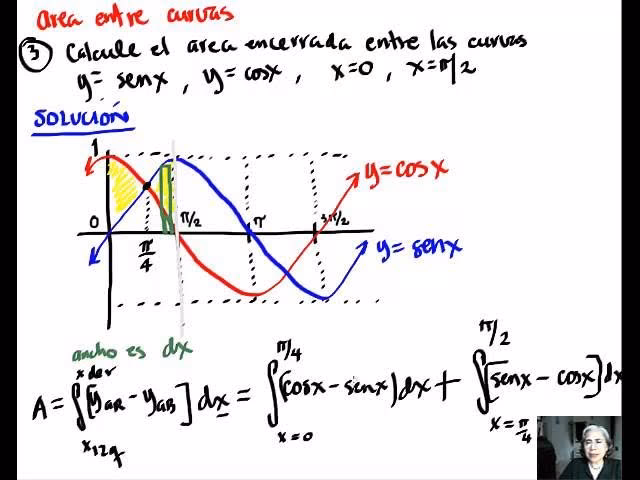 area entre curvas
③ Calcule el area encerrada entre las curvas
y = senx , y = cosx , x=0 , x=π/2
SOLUCIÓN
1
y=cosx
0
π/2
π
3π/2
π/4
y=senx
ancho es dx
A = ∫ x izq x der [yAR - yAB] dx = ∫ x=0 π/4 (cosx - senx) dx + ∫ x=π/4 π/2 [senx - cosx] dx